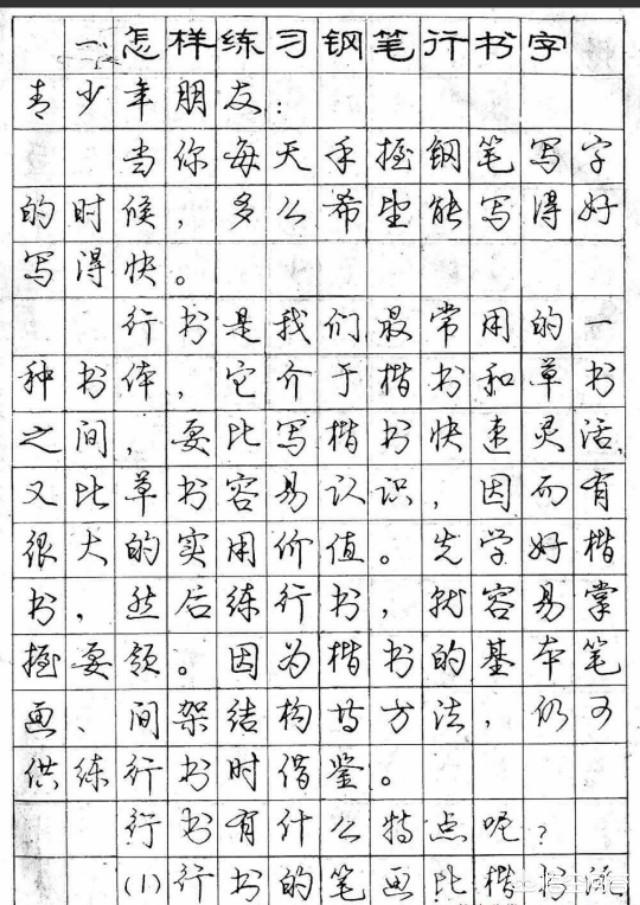 一、怎样练习钢笔行书字
青少年朋友:
当你每天手握钢笔写字
的时候,多么希望能写得好
写得快。
行书是我们最常用的一
种书体,它介于楷书和草书
之间,要比写楷书快速灵活,
又比草书容易认识,因而有
很大的实用价值。先学好楷
书,然后练行书,就容易掌
握要领。因为楷书的基本笔
画、间架结构等方法,仍可
供练行书时借鉴。
行书有什么特点呢?
(1)行书的笔画比楷书活